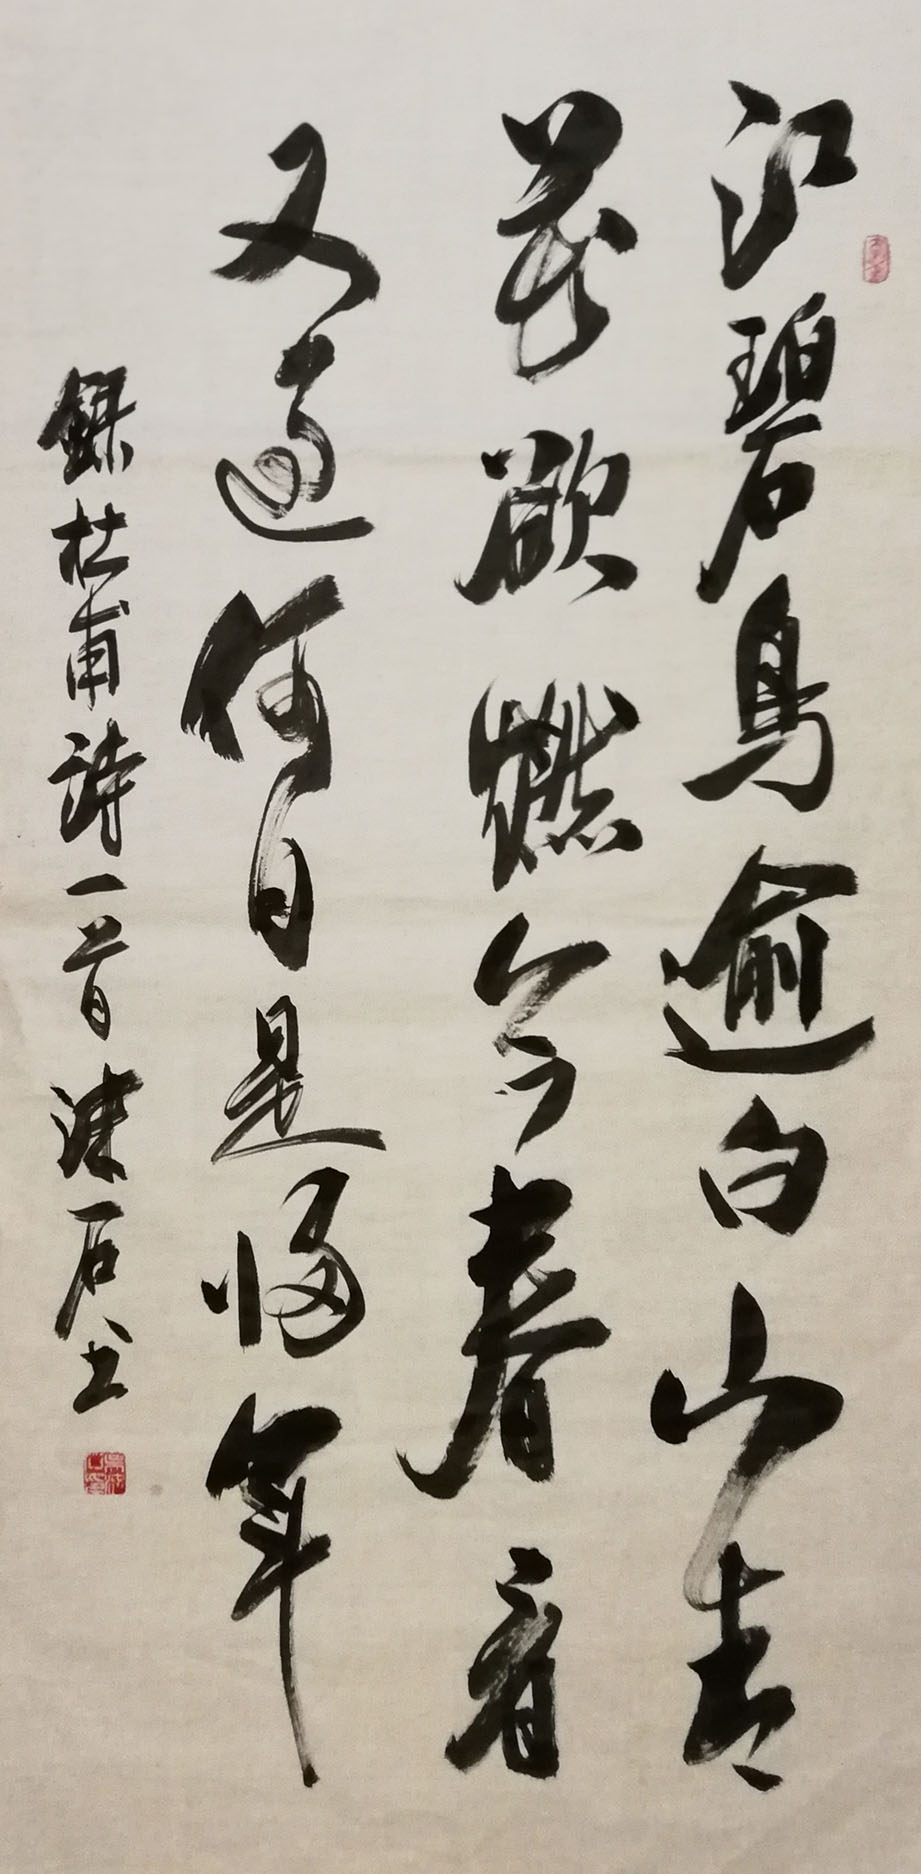 江碧鳥逾白山青
花欲燃今春看
又過何日是歸年
錄杜甫詩一首 石书